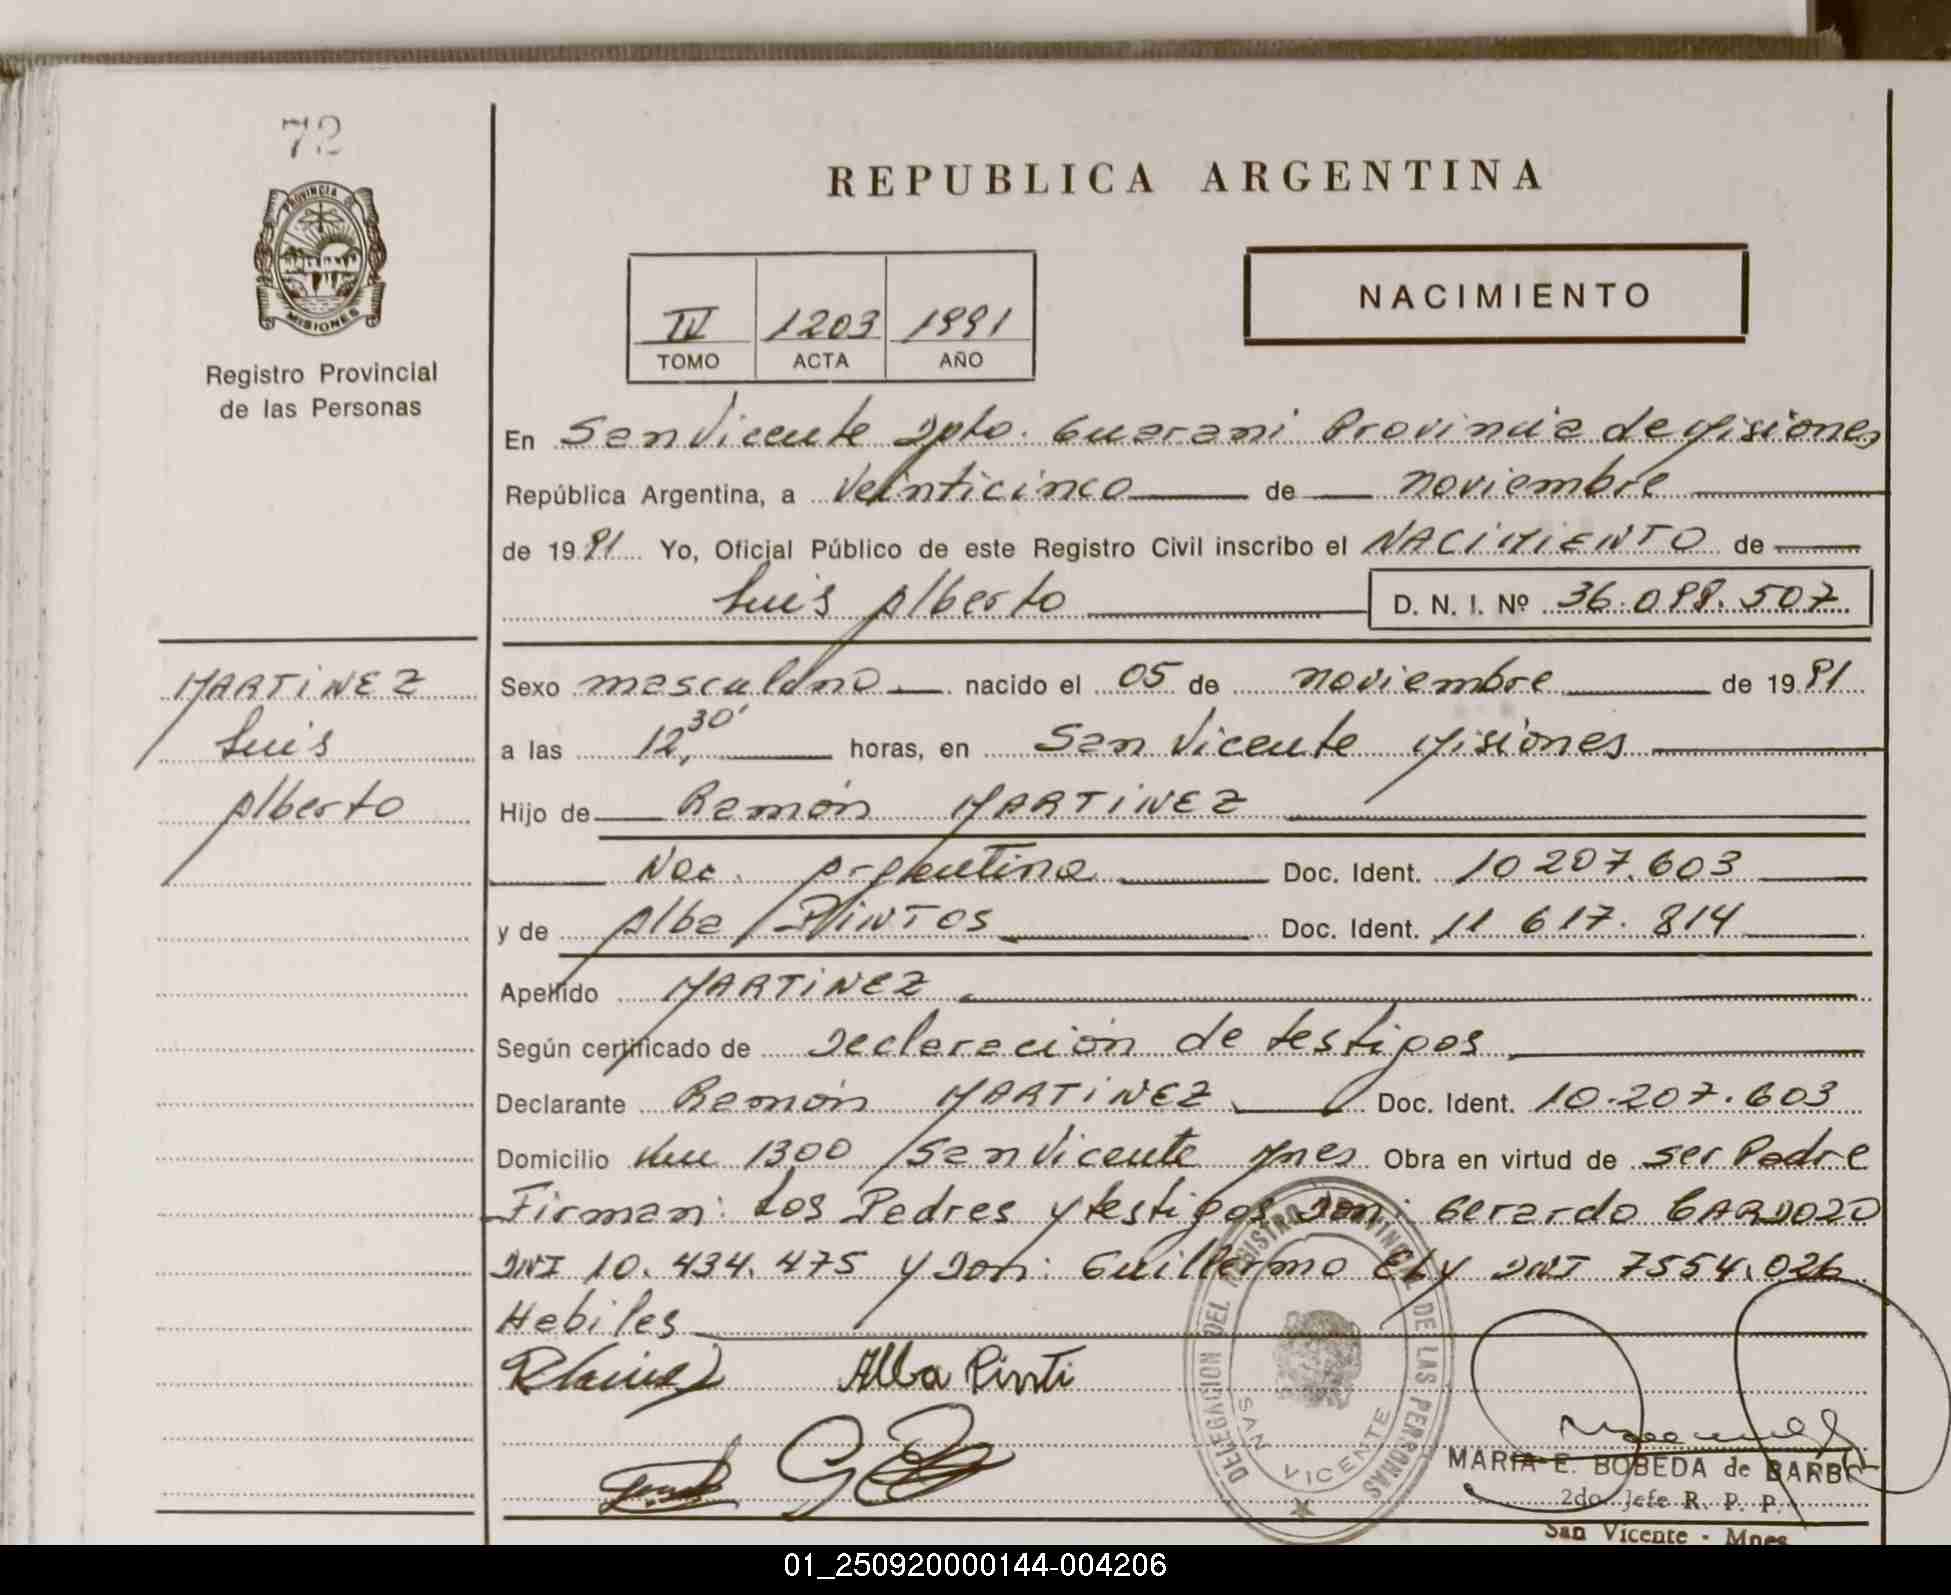 72
PROVINCIA DE
MISIONES
Registro Provincial
de las Personas
REPUBLICA ARGENTINA
IV 1203 1991
TOMO ACTA AÑO
NACIMIENTO
En San Vicente Dpto. Guarani Provincia de Misiones
República Argentina, a Veinticinco de noviembre
de 1991 Yo, Oficial Público de este Registro Civil inscribo el NACIMIENTO de
Luis Alberto D. N. I. Nº 36.098.507
MARTINEZ
Luis
Alberto
Sexo masculino nacido el 05 de noviembre de 1991
a las 12,30' horas, en San Vicente Misiones
Hijo de Ramón MARTINEZ
Nac. Argentina Doc. Ident. 10 207.603
y de Alba PINTOS Doc. Ident. 11 617.814
Apellido MARTINEZ
Según certificado de Declaración de testigos
Declarante Ramón MARTINEZ Doc. Ident. 10.207.603
Domicilio 1300 San Vicente Mnes Obra en virtud de ser Padre
Firman: Los Padres y testigos Don: Gerardo CARDOZO
DNI 10.434.475 y Don: Guillermo ELY DNI 7554.026
Habiles
Alba Pinti
DELEGACION DEL REGISTRO PROVINCIAL DE LAS PERSONAS
SAN VICENTE
MARIA E. BOBEDA de BARB
2do. Jefe R. P. P.
San Vicente - Mnes
01_250920000144-004206